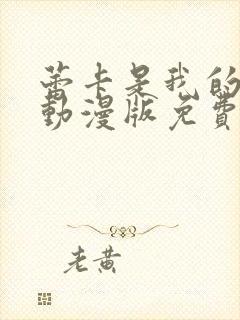 蕾卡是我的
動漫版免費
老黄